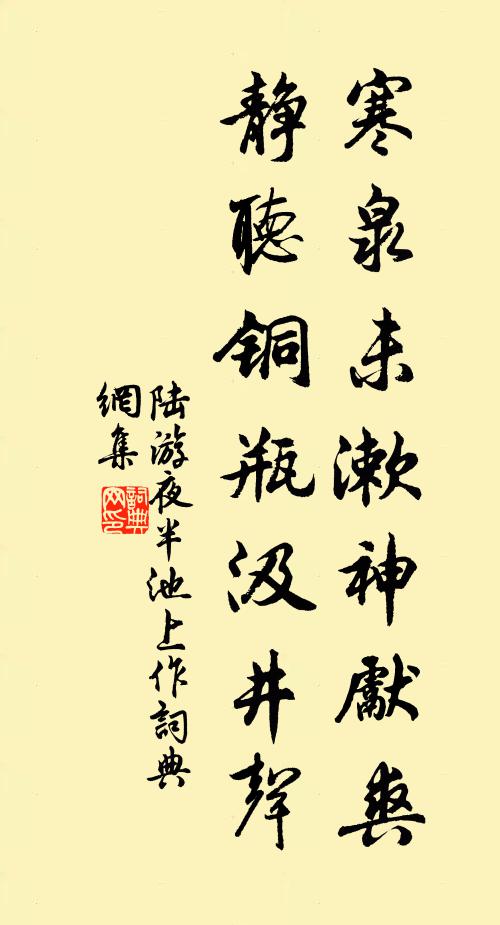 寒泉未漱神獻爽
静聴铜瓶汲井聲
陆游夜半池上作詞典
網集
詞典
网印